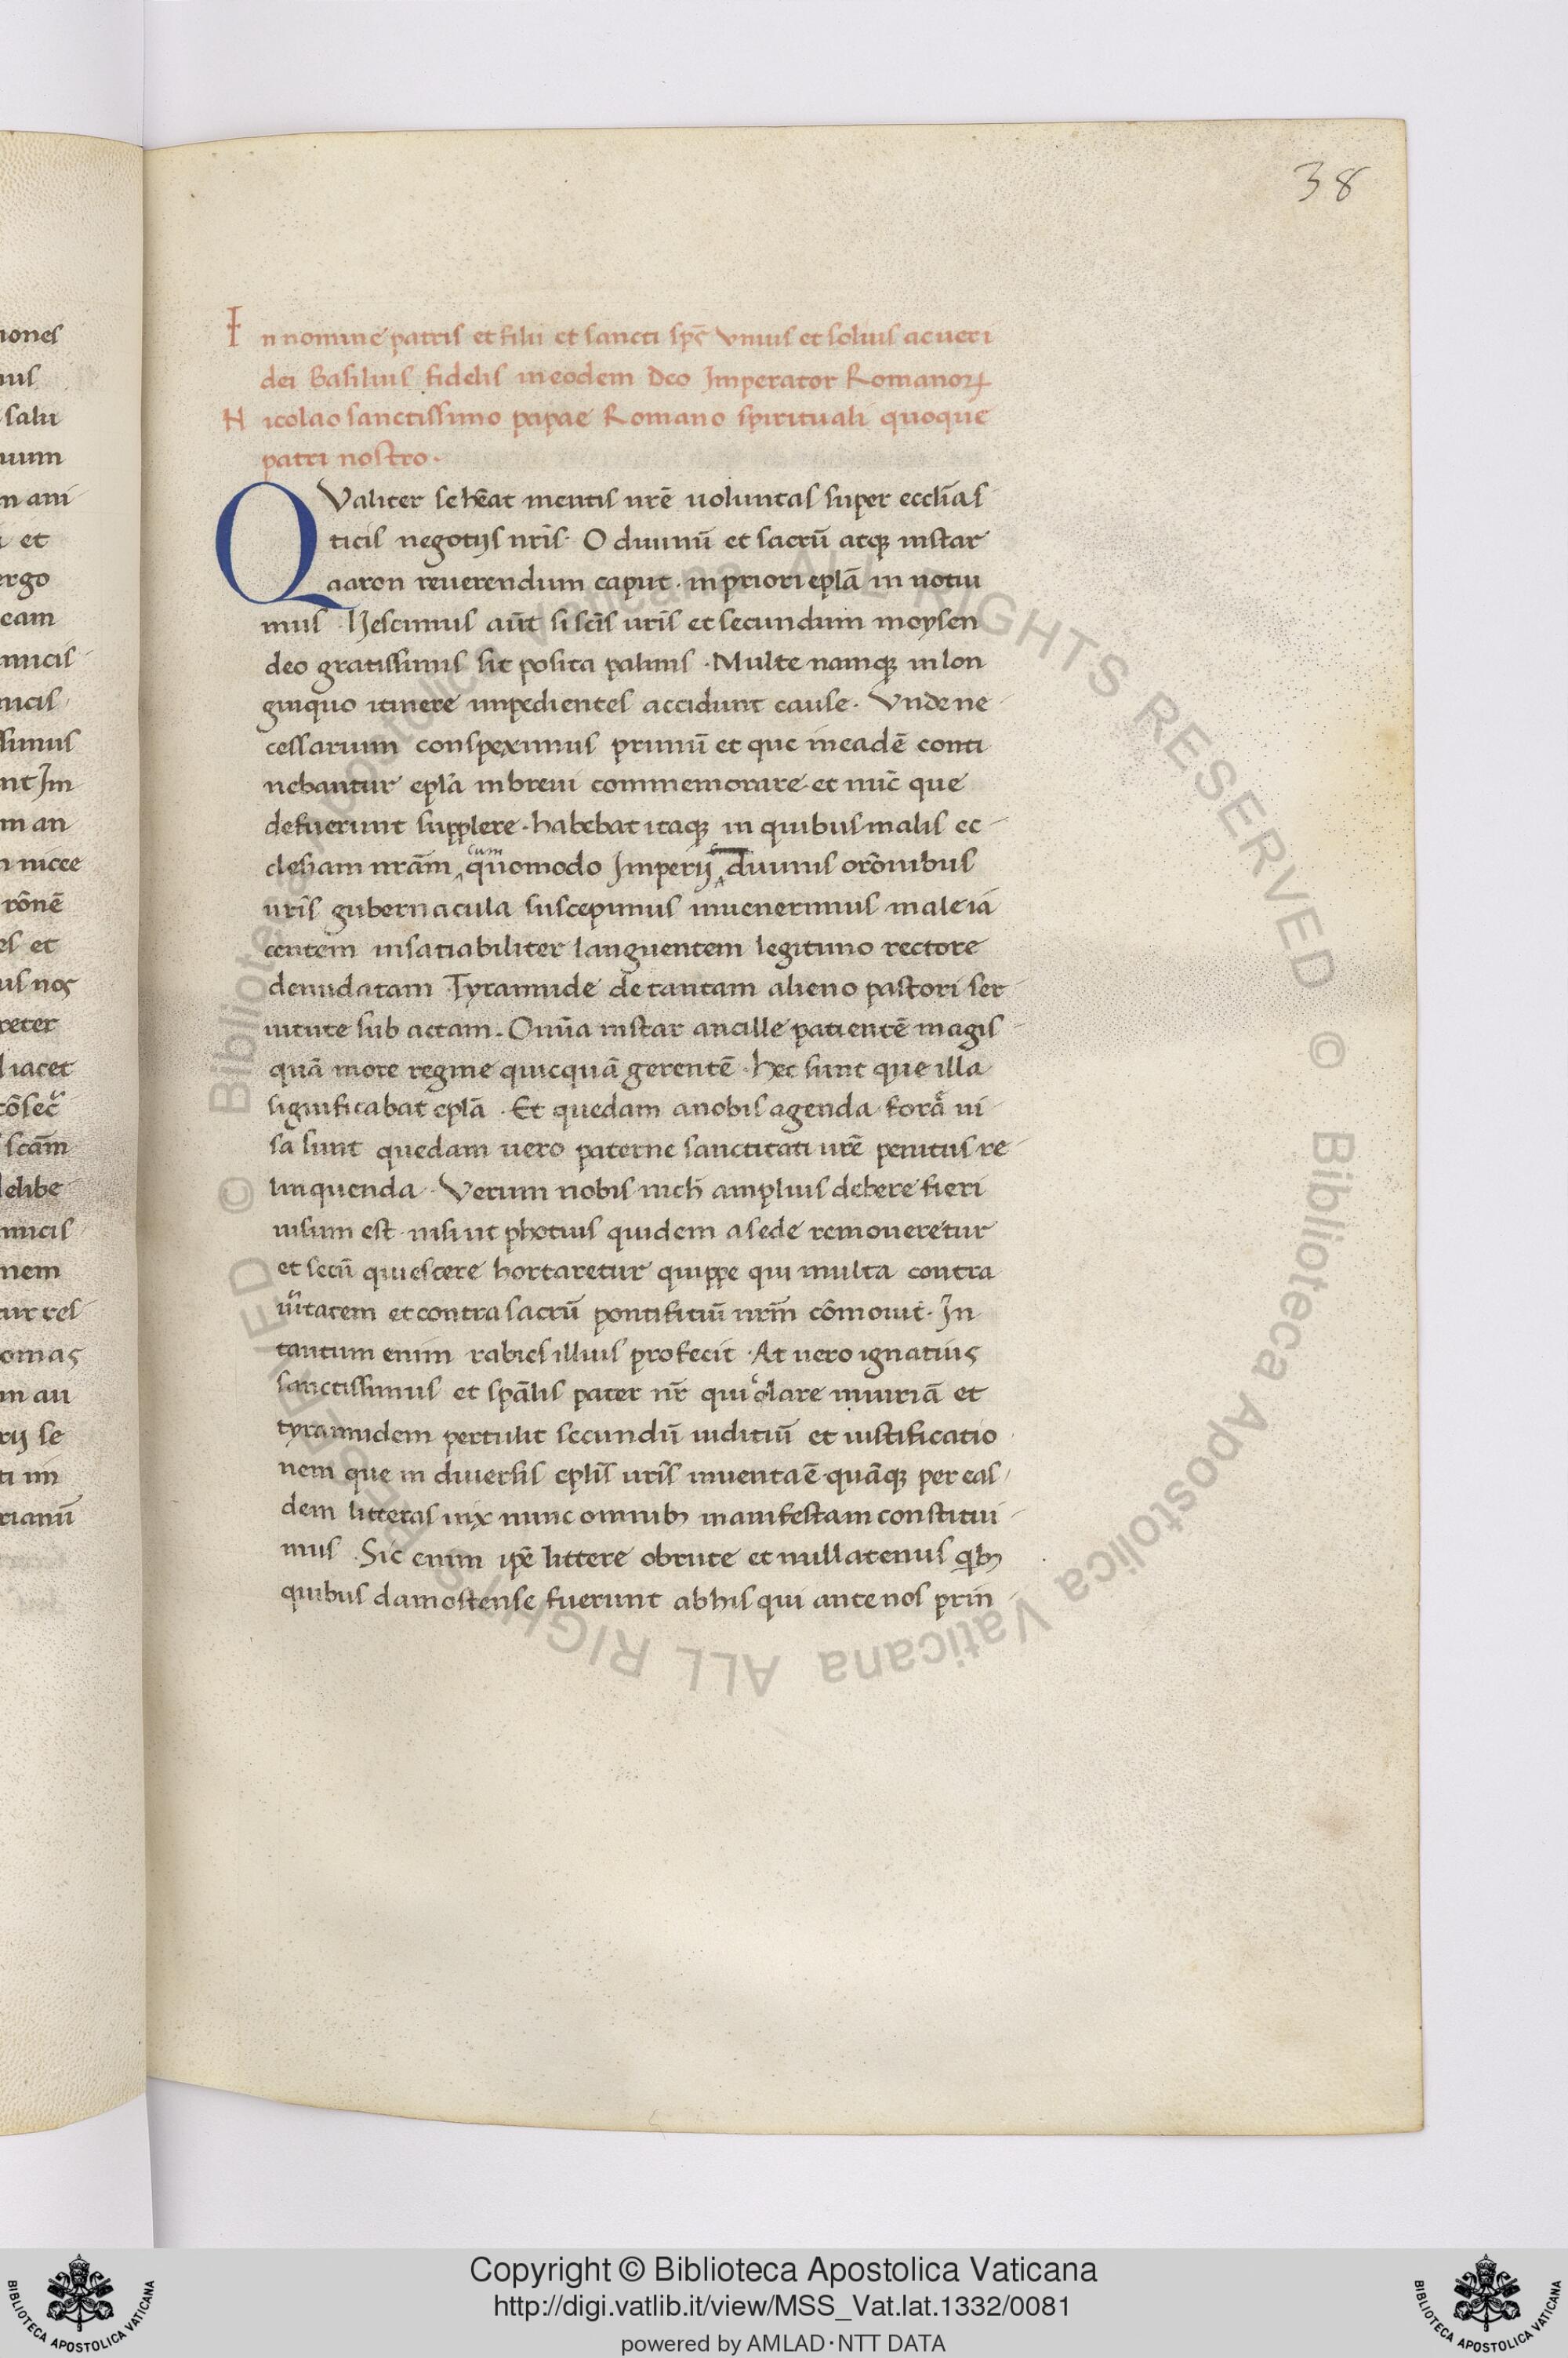 38
In nomine patris et filii et sancti spc̄ vnius et solius ac ueri
dei Basilius fidelis in eodem Deo Imperator Romanoꝝ
Nicolao sanctissimo papae Romano spirituali quoque
patri nostro.
QValiter se hēat mentis urē uoluntas super ecclīas
ticis negotijs nrīs. O diuinū et sacrū atqꝫ instar
aaron reuerendum caput. in priori eplā in notui
mus. Nescimus aūt si scīs urīs et secundum moysen
deo gratissimis sit posita palmis. Multe namqꝫ in lon
ginquo itinere impedientes accidunt cause. Vnde ne
cessarium conspeximus primū et que in eadē conti
nebantur eplā in breui commemorare. et nūc que
defuerunt supplere. habebat itaqꝫ in quibus malis ec
clesiam nrām cum quomodo Imperij diuinis orōnibus
urīs gubernacula suscepimus inuenerimus male ia
centem insatiabiliter languentem legitimo rectore
denudatam Tyrannide detantam alieno pastori ser
uitute sub actam. Om̄ia instar ancille patientē magis
quā more regine quicquā gerentē. hec sunt que illa
significabat eplā. Et quedam a nobis agenda forā ui
sa sunt quedam uero paterne sanctitati urē penitus re
linquenda. Verum nobis nich̄ amplius debere fieri
uisum est. nisi ut photius quidem a sede remoueretur
et secū quiescere hortaretur quippe qui multa contra
ur̄itatem et contra sacrū pontifitiū nrm̄ cōmouit. In
tantum enim rabies illius profecit. At uero ignatius
sanctissimus et spālis pater nr̄ qui olare iniuriā et
tyrannidem pertulit secundū iuditiū et iustificatio
nem que in diuersis eplīs urīs inuenta ē. quāqꝫ per eas
dem litteras uix nunc omnibꝫ manifestam constitui
mus. Sic enim ipē littere obrute et nullatenus qͥbꝫ
quibusdam ostense fuerunt ab his qui ante nos prin
iones
salu
et
ergo
eam
nicee
rōnē
us nos
iacet
scām
elibe
nem
omas
rianū
© Biblioteca Apostolica Vaticana ALL RIGHTS RESERVED © Biblioteca Apostolica Vaticana ALL RIGHTS RESERVED
Copyright © Biblioteca Apostolica Vaticana
http://digi.vatlib.it/view/MSS_Vat.lat.1332/0081
powered by AMLAD·NTT DATA
BIBLIOTECA APOSTOLICA VATICANA
BIBLIOTECA APOSTOLICA VATICANA